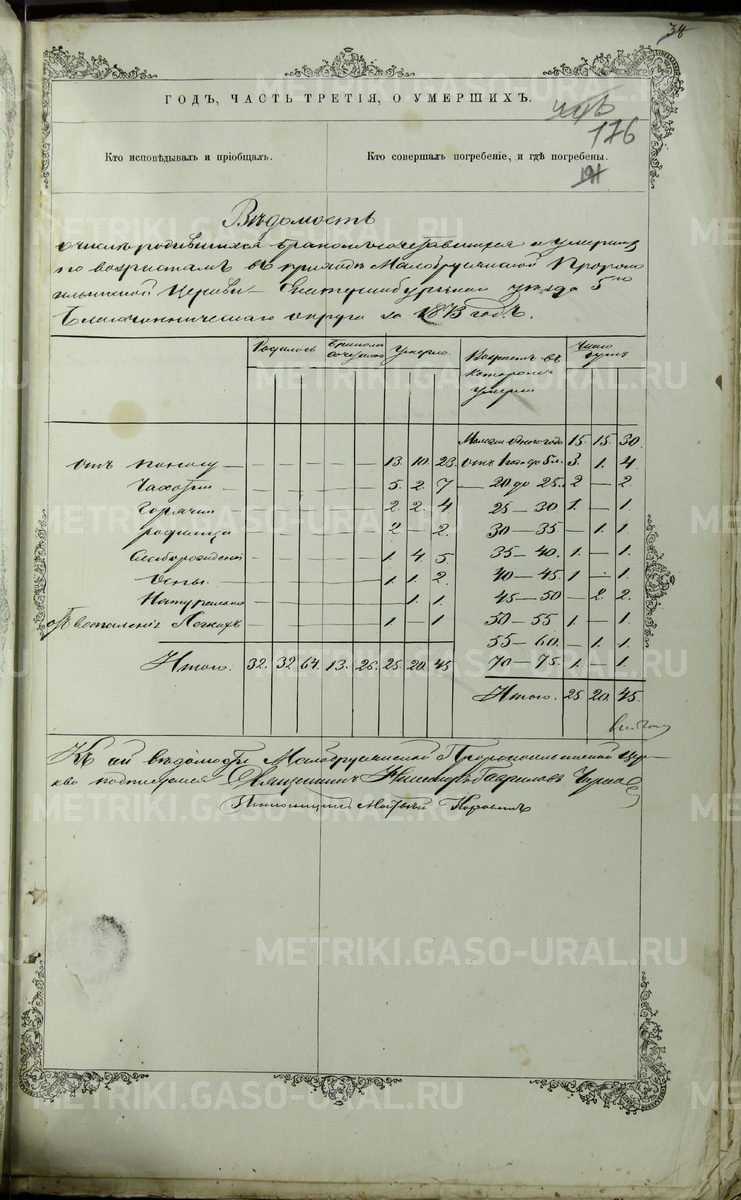 38
ГОДЪ, ЧАСТЬ ТРЕТІЯ, О УМЕРШИХЪ.
176
Кто исповѣдывалъ и пріобщалъ. Кто совершалъ погребеніе, и гдѣ погребены.
191
Вѣдомость
о числѣ родившихся бракомъ сочетавшихся и умершихъ
по возрастамъ въ приходѣ Малобрусянской Пророко
ильинской Церкви Екатеринбургскаго уѣзда 5го
Благочинническаго округа за 1873 годъ.
Родилось Бракомъ сочеталось Умерло. Возрастъ въ которомъ умерли Число душъ
Малѣе одного года 15. 15. 30.
отъ поносу — — — — — 13. 10. 23. отъ 1 года до 5 л. 3. 1. 4.
Чахотки — — — — — 5. 2. 7. — 20 до 25. 2 — 2.
Горячки — — — — — 2. 2. 4 25 — 30 1. — 1.
родимца — — — — — 2 — 2. 30 — 35 — 1. 1.
Слаборожденія — — — — — 1. 4. 5. 35 — 40. 1. — 1.
Оспы — — — — — 1. 1. 2. 40 — 45. 1 — 1.
Натурально — — — — — — 1. 1. 45 — 50 — 2. 2.
отъ воспаленія Легкихъ — — — — — 1 — 1. 50 — 55 1. — 1.
55 — 60. — 1. 1.
Итого. 32. 32. 64. 13. 26. 25. 20. 45 70 — 75. 1. — 1.
Итого. 25. 20. 45.
Къ сей вѣдомости Малобрусянской Пророкоильинской Цер-
кви подписался Священникъ Гавриловъ
Псаломщикъ
METRIKI.GASO-URAL.RU